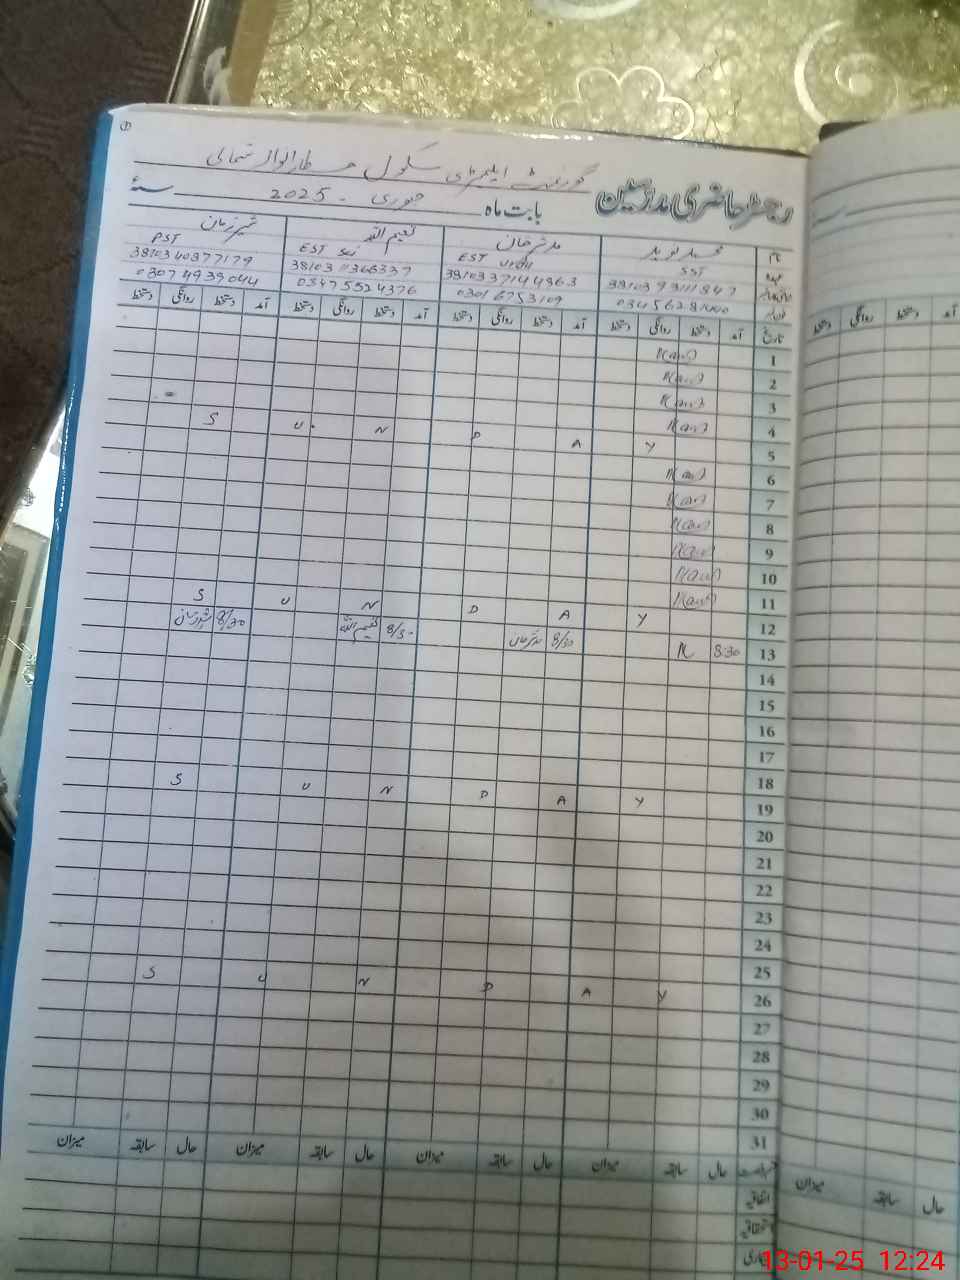 گورنمنٹ ایلیمنٹری سکول شمالی
رجسٹر حاضری مدرسین بابت ماہ جنوری - 2025 سنہ
نام محمد نوید مدثر خان نعیم اللہ شیر زمان
عہدہ SST EST Urdu EST Sci PST
3810393111847 3810337144963 3810311366337 3810340377179
03456281000 03016753109 03475524376 03074939044
تاریخ آمد دستخط روانگی دستخط آمد دستخط روانگی دستخط آمد دستخط روانگی دستخط آمد دستخط روانگی دستخط
آمد دستخط روانگی دستخط
1
2
3
4
5 S U N D A Y
6
7
8
9
10
11
12 S U N D A Y
13 8:30 مدثر خان 8/30 نعیم اللہ 8/30 شیر زمان 8/30
14
15
16
17
18
19 S U N D A Y
20
21
22
23
24
25
26 S U N D A Y
27
28
29
30
31
حال سابقہ میزان حال سابقہ میزان حال سابقہ میزان حال سابقہ میزان
حال سابقہ میزان
اتفاقیہ
13-01-25 12:24